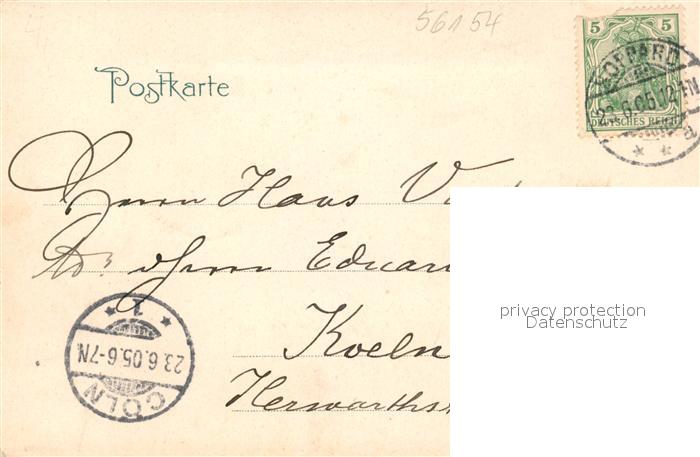 56154
5 5
BOPPARD
23.6.05.12-1N
a
DEUTSCHES REICH
Postkarte
Herrn Hans V
Adr. Herrn Eduar
Koeln
Herwarths
1
23.6.05.6-7N
CÖLN
privacy protection
Datenschutz